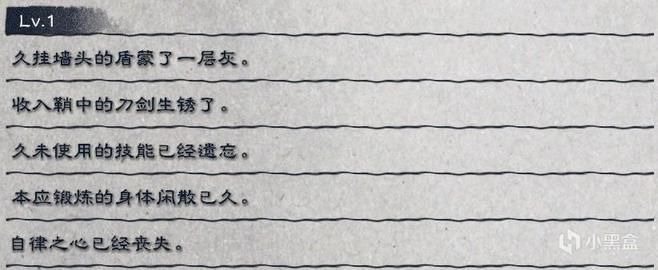 Lv.1
久挂墙头的盾蒙了一层灰。
收入鞘中的刀剑生锈了。
久未使用的技能已经遗忘。
本应锻炼的身体闲散已久。
自律之心已经丧失。
小黑盒